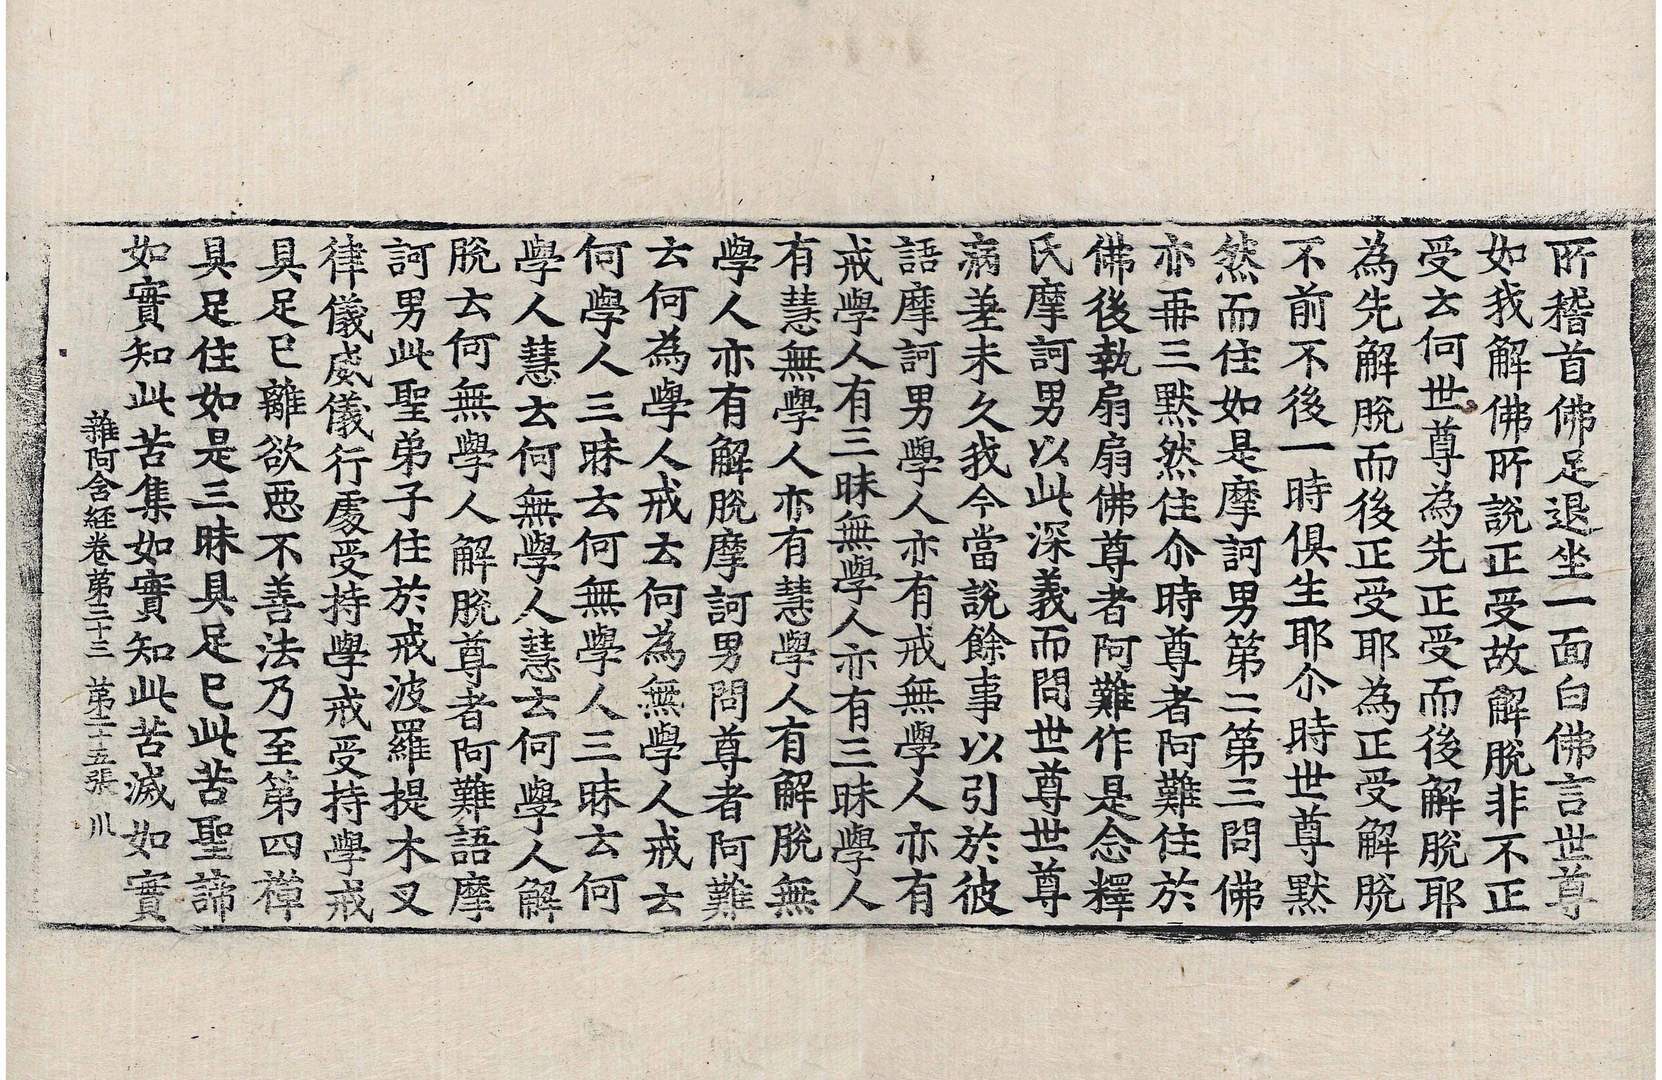 所稽首佛足退坐一面白佛言世尊
如我解佛所說正受故解脫非不正
受云何世尊為先正受而後解脫耶
為先解脫而後正受耶為正受解脫
不前不後一時俱生耶尒時世尊默
然而住如是摩訶男第二第三問佛
亦再三默然住尒時尊者阿難住於
佛後執扇扇佛尊者阿難作是念釋
氏摩訶男以此深義而問世尊世尊
病差未久我今當說餘事以引於彼
語摩訶男學人亦有戒無學人亦有
戒學人有三昧無學人亦有三昧學人
有慧無學人亦有慧學人有解脫無
學人亦有解脫摩訶男問尊者阿難
云何為學人戒云何為無學人戒云
何學人三昧云何無學人三昧云何
學人慧云何無學人慧云何學人解
脫云何無學人解脫尊者阿難語摩
訶男此聖弟子住於戒波羅提木叉
律儀威儀行處受持學戒受持學戒
具足已離欲惡不善法乃至第四禪
具足住如是三昧具足已此苦聖諦
如實知此苦集如實知此苦滅如實
雜阿含經卷第三十三 第二十五張 川